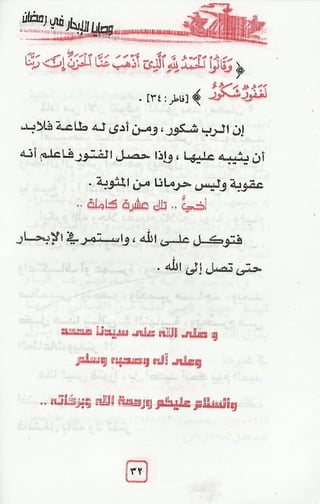 وصايا للإبحار في رمضان
﴿ وَقَالُوا الْحَمْدُ لِلَّهِ الَّذِي أَذْهَبَ عَنَّا الْحَزَنَ إِنَّ رَبَّنَا
لَغَفُورٌ شَكُورٌ ﴾ [ فاطر : ٣٤ ] .
إن الرب شكور ، ومن أدى له طاعة فلابد
أن يثيبه عليها ، وإذا حصل الفتور فاعلم أنه
عقوبة وليس حرمانا من المثوبة .
أخيَّ .. تلك عشرة كاملة ..
فتوكل على الله ، واستمر في الإبحار
حتى تصل إلى الله .
و صلى الله على سيدنا محمد
وعلى آله وصحبه وسلم
والسلام عليكم ورحمة الله وبركاته ..
٣٢